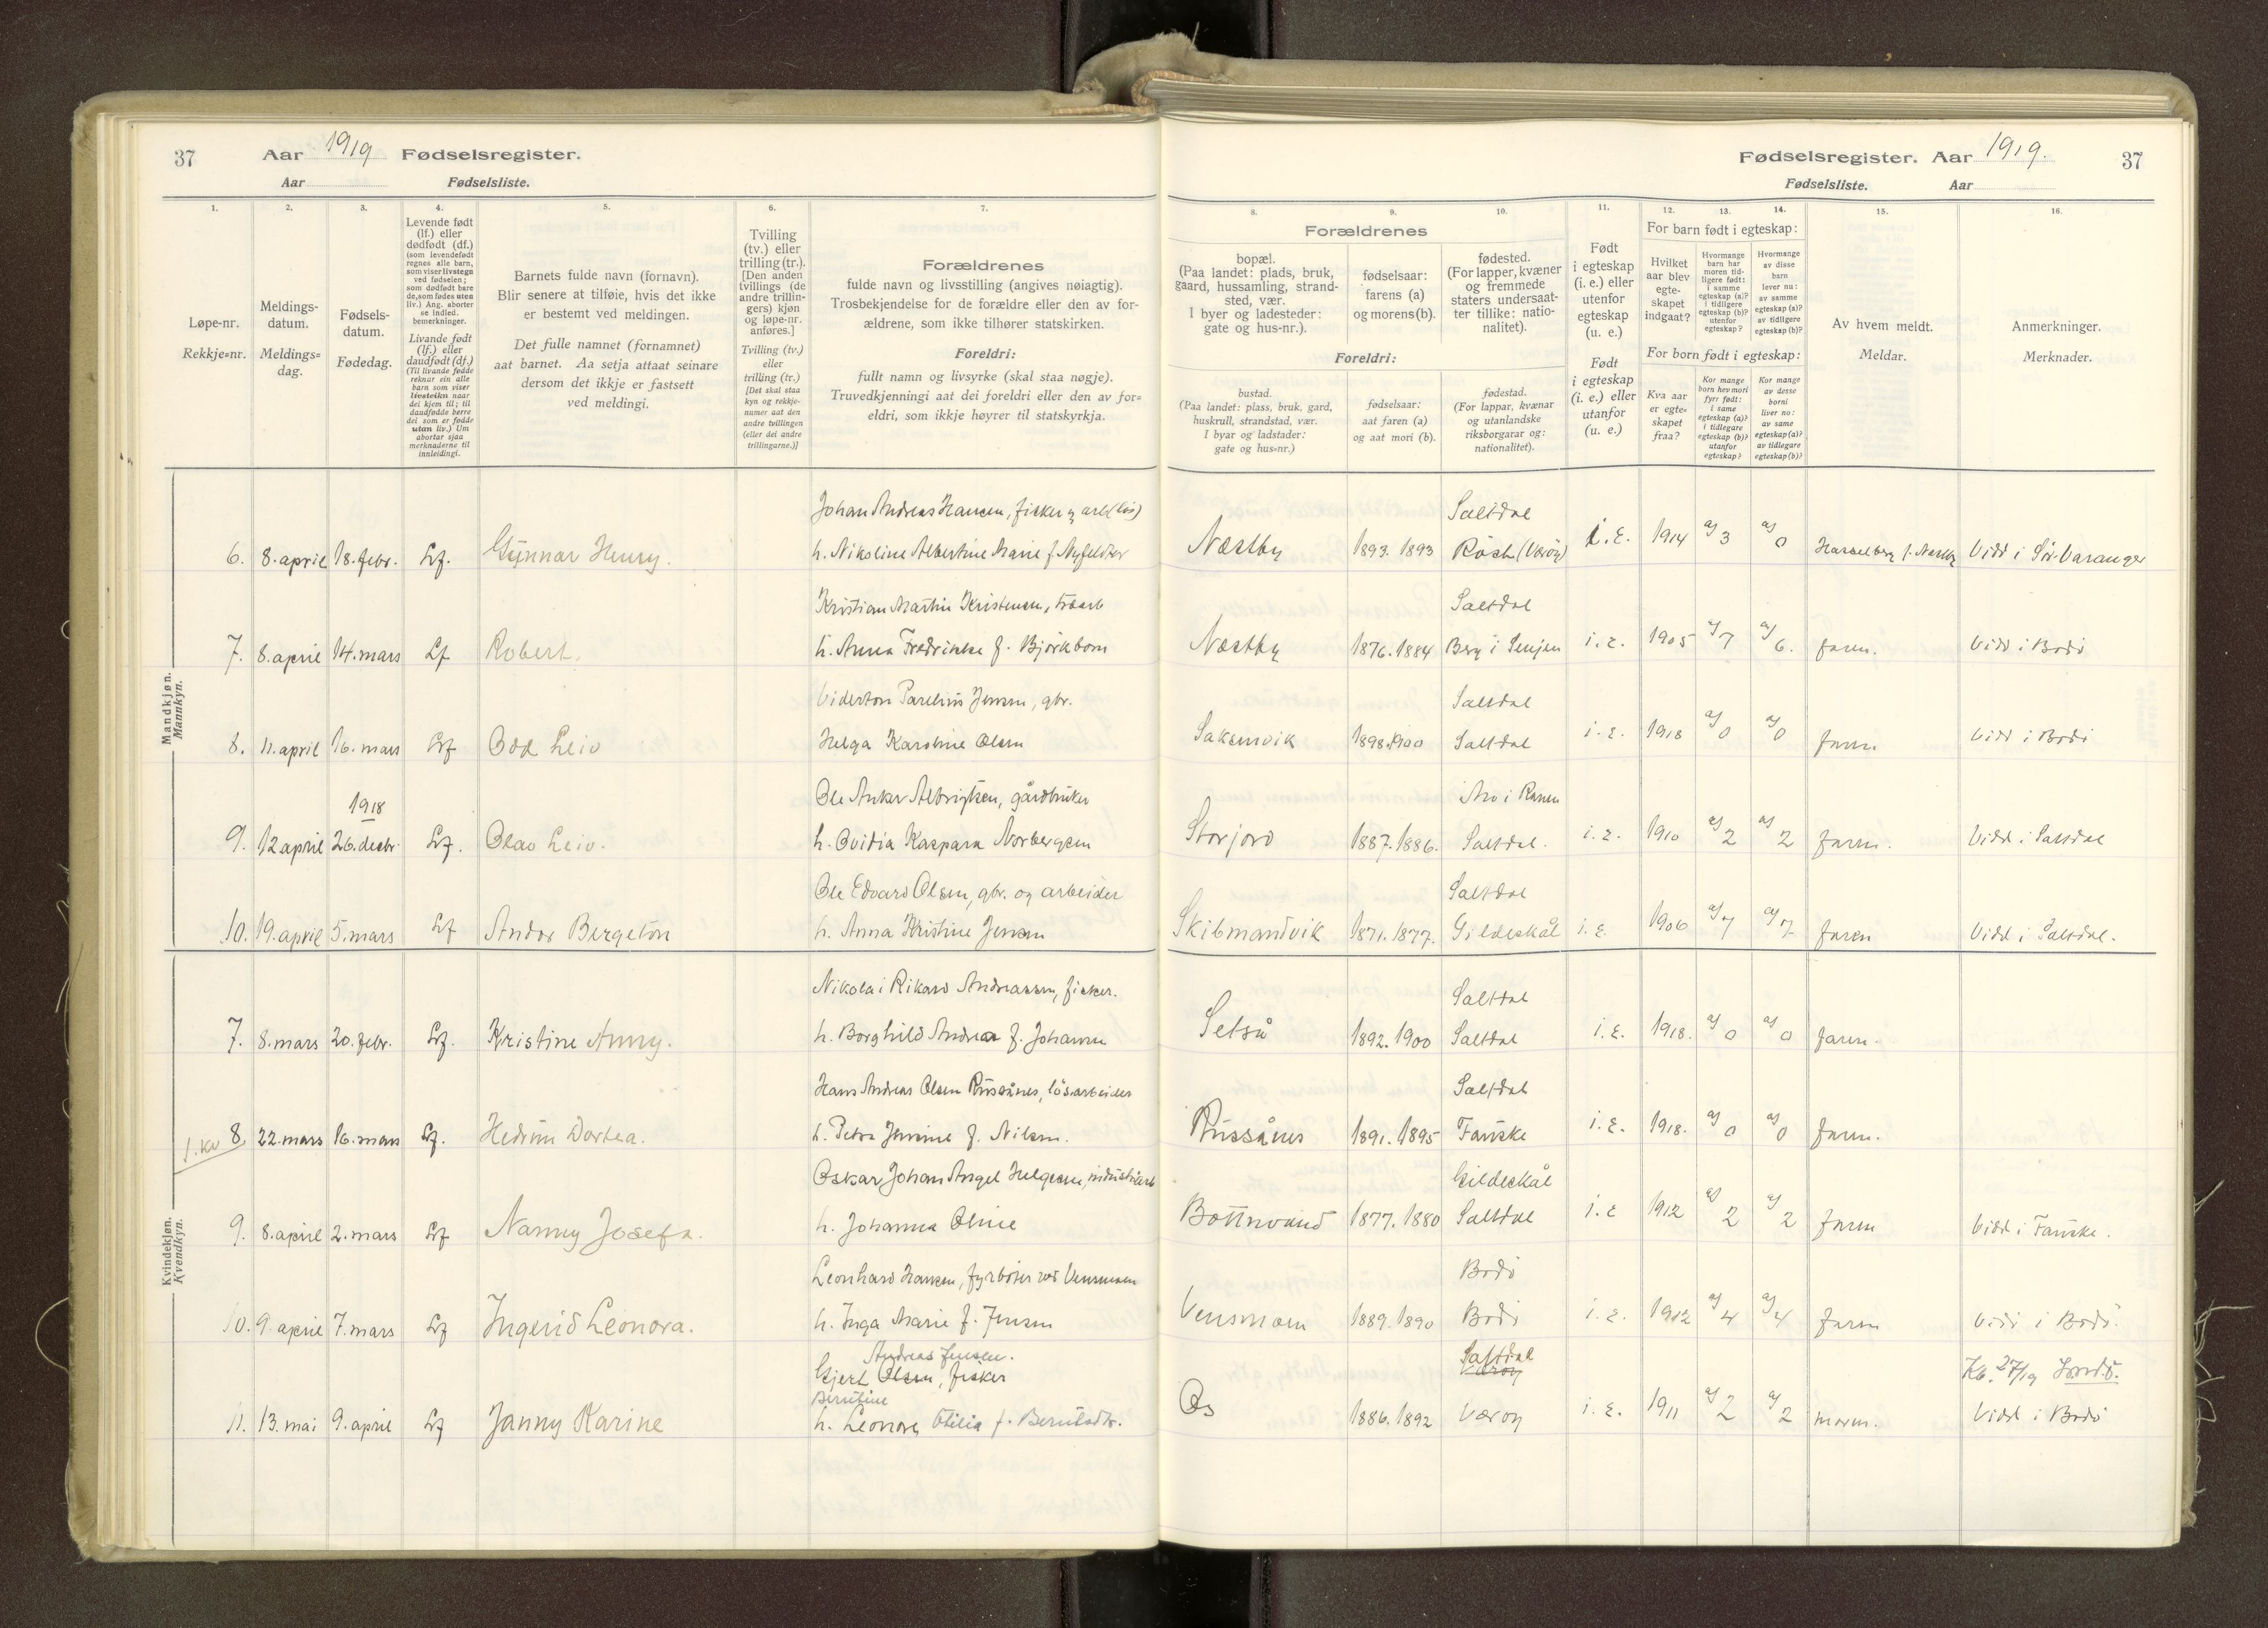 37
Aar 1919 Fødselsregister.
Aar Fødselsliste.
Fødselsregister. Aar 1919.
37
Fødselsliste. Aar
1. 2. 3. 4. 5. 6. 7.
Løpe-nr.
Rekkje=nr.
Meldings-
datum.
Meldings=
dag.
Fødsels-
datum.
Fødedag.
Levende født
(lf.) eller
dødfødt (df.)
(som levendefødt
regnes alle barn,
som viser livstegn
ved fødselen;
som dødfødt bare
de, som fødes uten
liv.) Ang. aborter
se indled.
bemerkninger.
Livande født
(lf.) eller
daudfødt (df.)
(Til livande fødde
reknar ein alle
barn som viser
livsteikn naar
dei kjem til; til
daudfødde berre
dei som er fødde
utan liv.) Um
abortar sjaa
merknaderne til
innleidingi.
Barnets fulde navn (fornavn).
Blir senere at tilføie, hvis det ikke
er bestemt ved meldingen.
Det fulle namnet (fornamnet)
aat barnet. Aa setja attaat seinare
dersom det ikkje er fastsett
ved meldingi.
Tvilling
(tv.) eller
trilling (tr.).
[Den anden
tvillings (de
andre trillin-
gers) kjøn
og løpe-nr.
anføres.]
Tvilling (tv.)
eller
trilling (tr.)
[Det skal staa
kyn og rekkje-
numer aat den
andre tvillingen
(eller dei andre
trillingarne.)]
Forældrenes
fulde navn og livsstilling (angives nøiagtig).
Trosbekjendelse for de forældre eller den av for-
ældrene, som ikke tilhører statskirken.
Foreldri:
fullt namn og livsyrke (skal staa nøgje).
Truvedkjenningi aat dei foreldri eller den av for=
eldri, som ikkje høyrer til statskyrkja.
8. 9. 10. 11. 12. 13. 14. 15. 16.
Forældrenes
bopæl.
(Paa landet: plads, bruk,
gaard, hussamling, strand-
sted, vær.
I byer og ladesteder:
gate og hus-nr.).
fødselsaar:
farens (a)
og morens (b).
fødested.
(For lapper, kvæner
og fremmede
staters undersaat-
ter tillike: natio-
nalitet).
Foreldri:
bustad.
(Paa landet: plass, bruk, gard,
huskrull, strandstad, vær.
I byar og ladstader:
gate og hus=nr.)
fødselsaar:
aat faren (a)
og aat mori (b).
fødestad.
(For lappar, kvænar
og utanlandske
riksborgarar og:
nationalitet).
Født
i egteskap
(i. e.) eller
utenfor
egteskap
(u. e.)
Født
i egteskap
(i. e.) eller
utanfor
(u. e.)
For barn født i egteskap:
Hvilket
aar blev
egte-
skapet
indgaat?
Hvormange
barn har
moren tid-
ligere født:
i samme
egteskap (a)?
i tidligere
egteskap (b)?
utenfor
egteskap?
Hvormange
av disse
barn
lever nu:
av samme
egteskap (a)?
av tidligere
egteskap (b)?
For born født i egteskap:
Kva aar
er egte=
skapet
fraa?
Kor mange
born hev mori
fyrr født:
i same
egteskap (a)?
i tidlegare
egteskap (b)?
utanfor
egteskap?
Kor mange
av desse
borni
liver no:
av same
egteskap (a)?
av tidlegare
egteskap (b)?
Av hvem meldt.
Meldar.
Anmerkninger.
Merknader.
Mandkjøn.
Mannkyn.
Johan Andreas Hansen, fisker og arb(løs) Saltdal
6. 8. april 18. febr. Lf. Gunnar Henry. h. Nikoline Albertine Marie f. Nyfeldter Næstby 1893. 1893 Röst (Værøy) i. e. 1914 a) 3 a) 0 Hasselberg f. Næstby Vidd i Sör-Varanger
Kristian Martin Kristensen, Saltdal
7. 8. april 14. mars Lf Robert. h. Anna Fredrikke f. Björkbom Næstby 1876. 1884 Berg i Senjen i. e. 1905 a) 7 a) 6. faren. Vidd i Bodö
Viderton Parelius Jensen, gbr. Saltdal
8. 11. april 16. mars Lf Odd Leiv Helga Karoline Olsen Saksenvik 1898. 1900 Saltdal i. e. 1918 a) 0 a) 0 faren Vidd i Bodö
1918 Ole Anker Albrigtsen, gårdbruker Mo i Ranen
9. 12 april 26. decbr. Lf. Olav Leiv. h. Ovidia Kaspara Norbergsen Storjord 1887. 1886. Saltdal. i. e. 1910 a) 2 a) 2 faren. Vidd. i Saltdal
Ole Edvard Olsen, gbr. og arbeider Saltdal
10. 19. april 5. mars Lf Andor Bergeton h. Anna Kristine Jensen Skibmandvik 1871. 1877. Gildeskål i. e. 1906 a) 7 a) 7 faren Vidd i Saltdal.
Kvindekjøn.
Kvendkyn.
Nikolai Rikard Andreassen, fisker. Saltdal
7. 8. mars 20. febr. Lf. Kristine Anny. h. Borghild Andrea f. Johansen Setså 1892. 1900 Saltdal i. e. 1918. a) 0 a) 0 faren.
Hans Andreas Olsen Russånes, lösarbeider Saltdal
1. kv 8. 22. mars 16. mars Lf. Hedvin Dortea. h. Petra Jensine f. Nilsen. Russånes 1891. 1895 Fauske i. e. 1918. a) 0 a) 0 faren.
Oskar Johan Angel Helgesen, industriarb Gildeskål
9. 8. april 2. mars Lf Nanny Josefa. h. Johanna Oline Bottnvand 1877. 1880 Saltdal i. e 1912 a) 2 a) 2 faren Vidd i Fauske.
Leonhard Hansen, fyrböter ved Vensmoen Bodö
10. 9. april 7. mars Lf Ingerid Leonora. h. Inga Marie f. Jensen Vensmoen 1889. 1890 Bodö i. e. 1912 a) 4 a) 4 faren Vidd i Bodö.
Andreas Jensen. Saltdal
Gjert Olsen, fisker Værøy Kb. 27/19
Berntine
11. 13. mai 9. april Lf Janny Karine h. Leonora Otilia f. Berntsdtr. Os 1886. 1892 Værøy i. e. 1911 a) 2 a) 2 moren. Vidd i Bodö